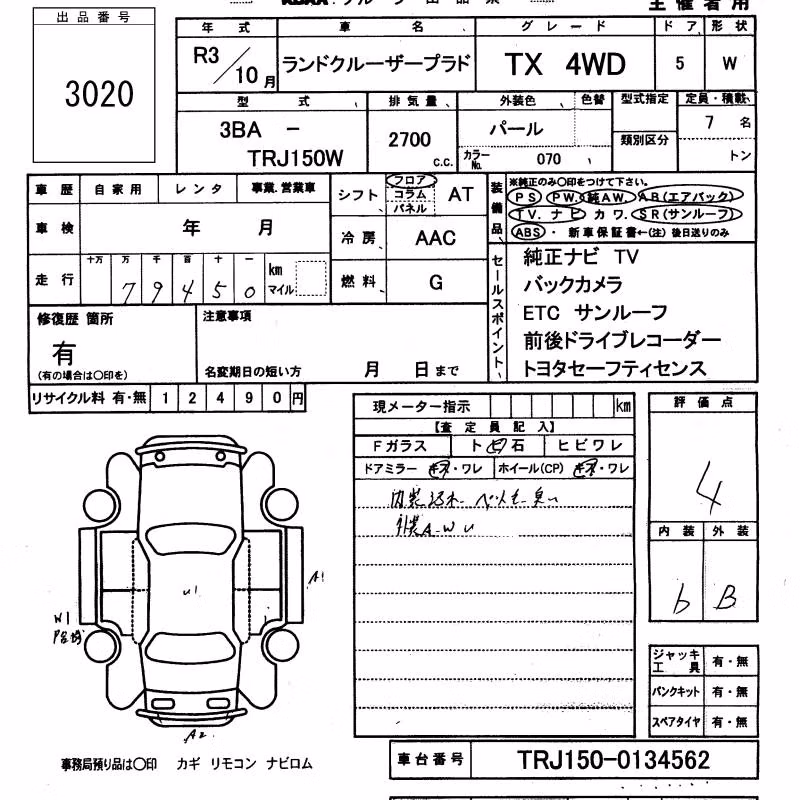 主催者用
出品番号
3020
年式
車名
グレード
ドア
形状
R3/10月
ランドクルーザープラド
TX 4WD
5
W
型式
排気量
外装色
色替
型式指定
定員・積載
3BA -
TRJ150W
2700
c.c.
パール
カラーNo.
070
類別区分
7 名
トン
車歴
自家用
レンタ
事業.営業車
シフト
フロア
コラム
パネル
AT
装備品
※純正のみ〇印をつけて下さい。
PS PW. 純AW. AB(エアバック)
TV. ナビ カワ. SR(サンルーフ)
ABS ・ 新車保証書←(注) 後日送りのみ
車検
年 月
冷房
AAC
走行
十万 万 千 百 十 一
7 9 4 5 0
km
マイル
燃料
G
セールスポイント
純正ナビ TV
バックカメラ
ETC サンルーフ
前後ドライブレコーダー
トヨタセーフティセンス
修復歴 箇所
有
(有の場合は〇印を)
注意事項
名変期日の短い方
月 日まで
リサイクル料 有・無 12490円
現メーター指示
km
【査定員記入】
Fガラス
ト ビ 石
ヒビワレ
ドアミラー キズ・ワレ
ホイール(CP) キズ・ワレ
評価点
4
内装
外装
b
B
U1
A1
W1
A2
ジャッキ
工具
有・無
パンクキット
有・無
スペアタイヤ
有・無
事務局預り品は〇印 カギ リモコン ナビロム
車台番号
TRJ150-0134562